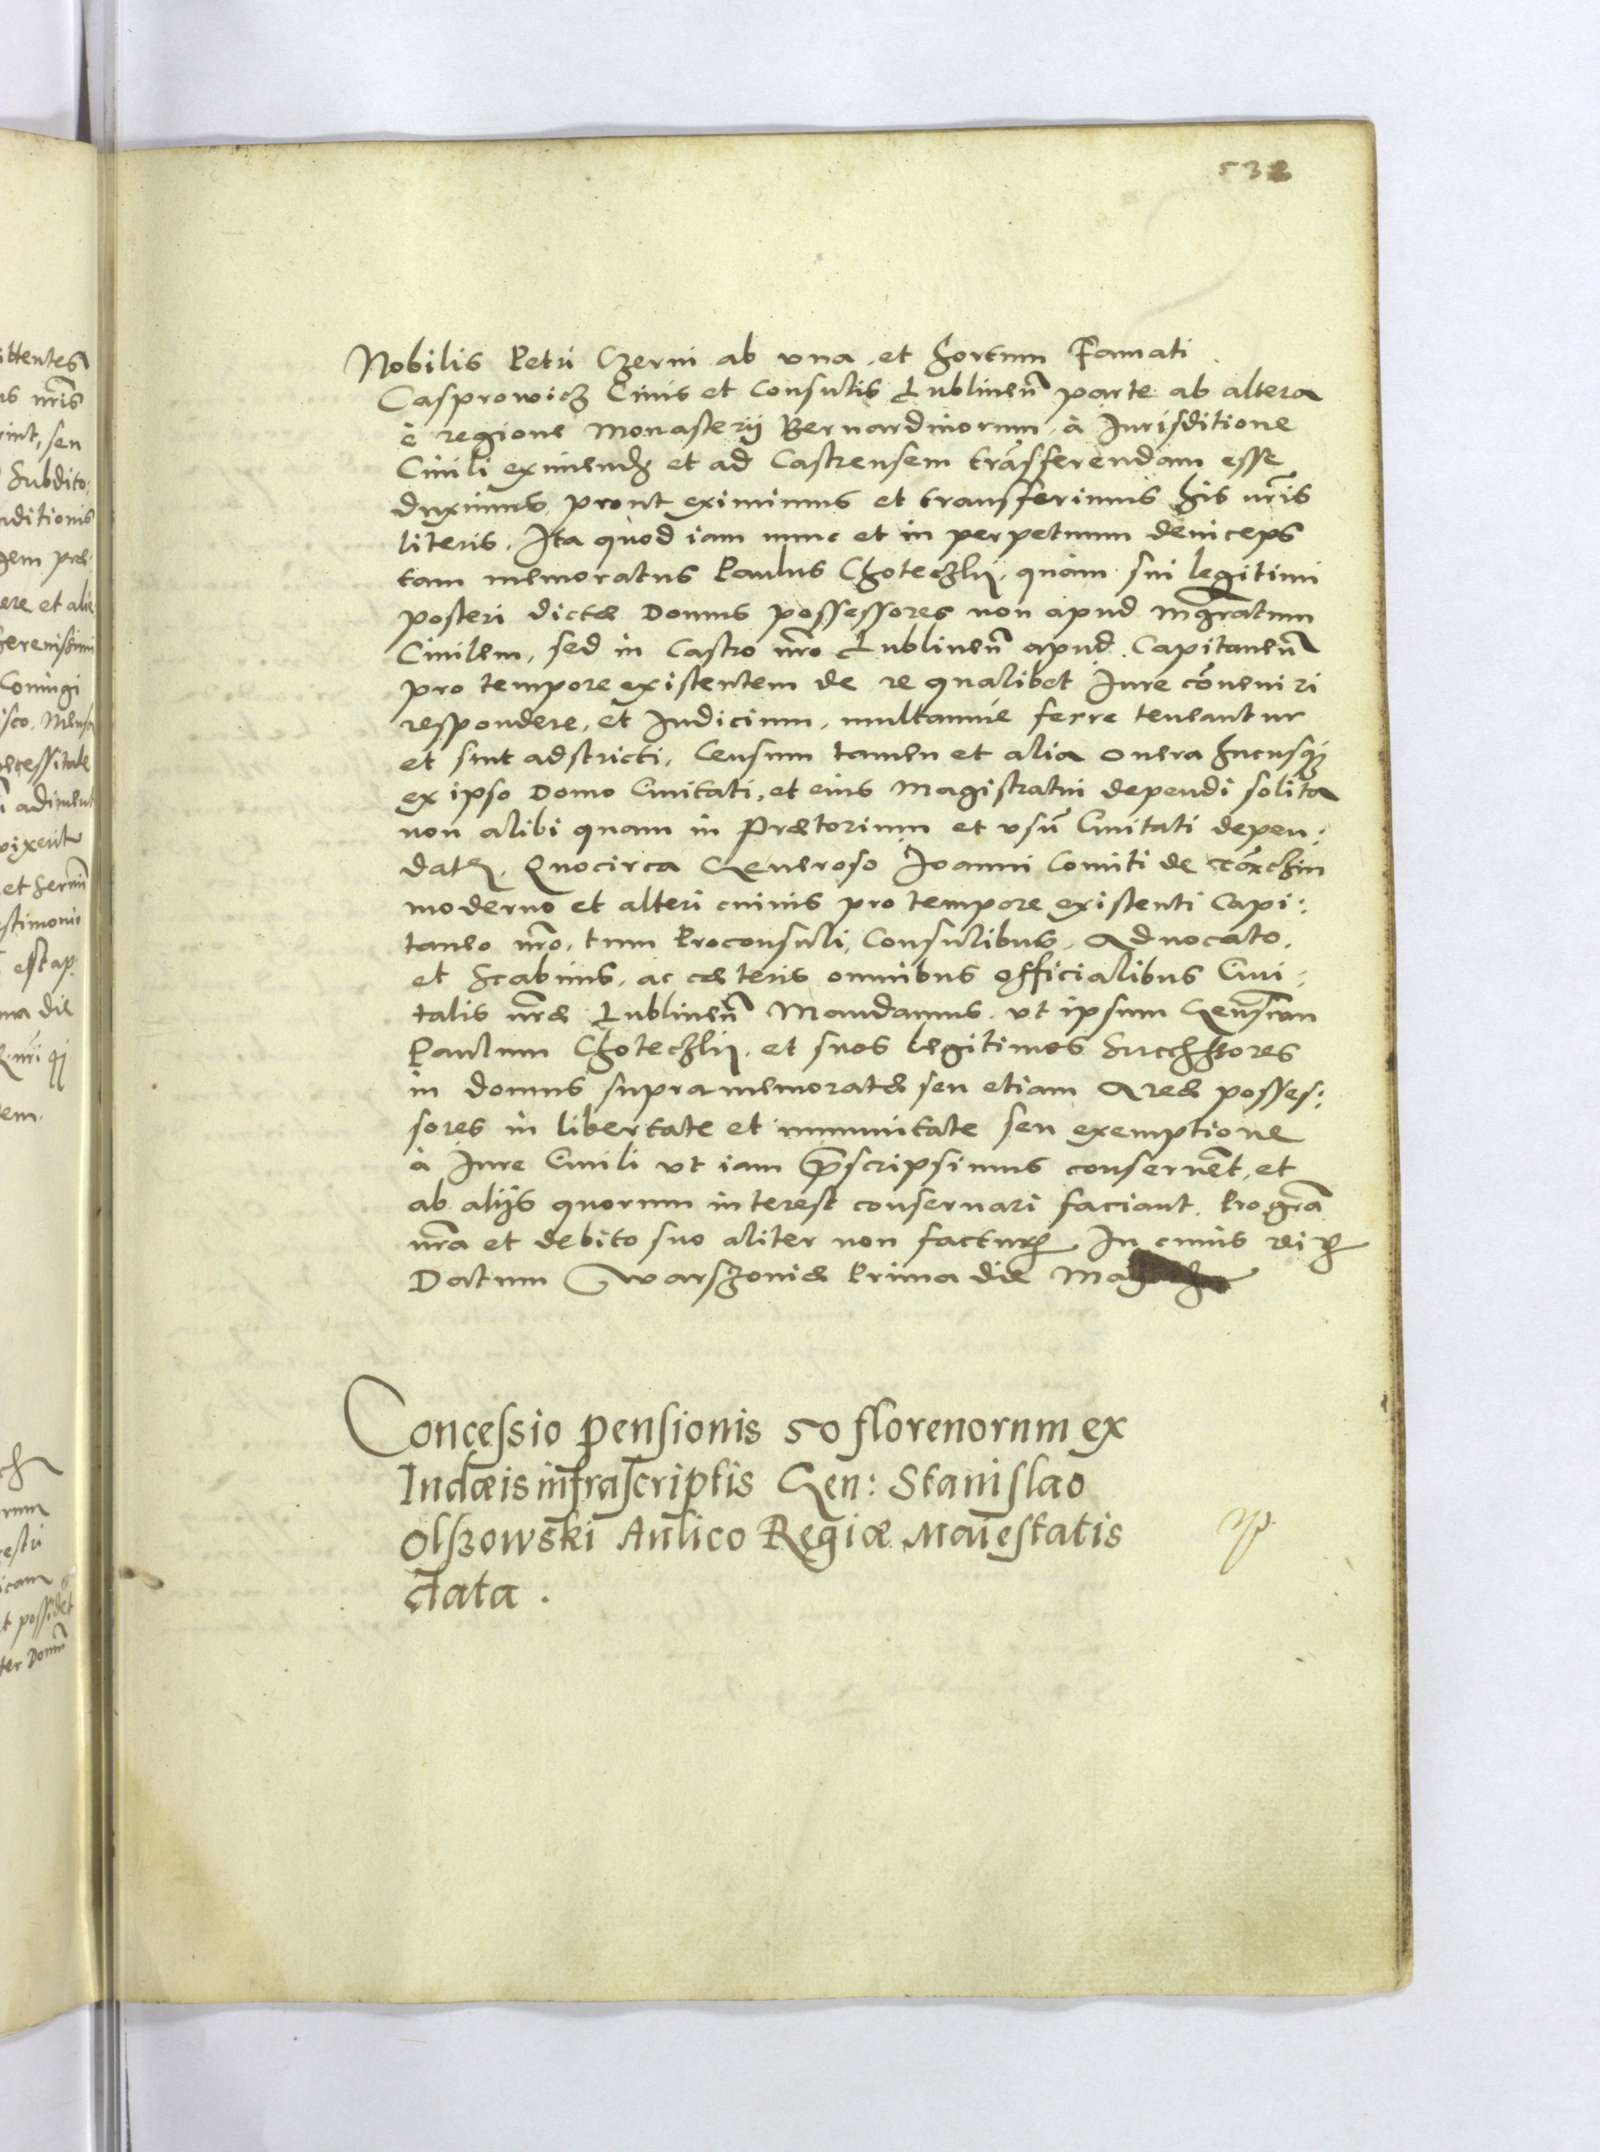 532
Nobilis Petri Czerni ab vna, et Hortum Famati
Casprowicz Ciuis et Consulis Lublineñ parte ab altera
è regione Monasterij Bernardinorum, à Jurisditione
Ciuili eximend et ad Castrensem trãsferendam esse
duximus, prout eximimus et transferimus his nr̃is
literis. Ita quod iam nunc et in perpetuum deinceps
tam memoratus Paulus quam sui legitimi
posteri dictæ Domus possessores non apud Mgr̃atum
Ciuilem, sed in Castro nr̃o Lublineñ apud Capitaneũ
pro tempore existentem de re qualibet Jure cõueniri
respondere, et Judicium, mulctamue ferre teneantur
et sint adstricti, Censum tamen et alia onera hucusq
ex ipso Domo Ciuitati, et eius Magistratui dependi solita
non alibi quam in Prætorium et vsũ Ciuitati depen:
dat. Quocirca Generoso Joanni Comiti de Tẽczin
moderno et alteri cuiuis pro tempore existenti Capi:
taneo nr̃o, tum Proconsuli, Consulibus, Aduocato,
et Scabinis, ac cæteris omnibus officialibus Ciui:
tatis nr̃æ Lublineñ Mandamus, vt ipsum Genr̃sum
Paulum et suos legitimos Successores
in domus supramemoratæ seu etiam Areæ posses:
sores in libertate et immunitate seu exemptione
à Jure Ciuili vt iam p̃scripsimus conseruẽt, et
ab alijs quorum interest conseruari faciant. Pro gr̃a
nr̃a et debito suo aliter non factur In cuius rei
Datum Warszouiæ Prima die
Concessio pensionis 50 florenorum ex
Iudæis infrascriptis Gen: Stanislao
Olszowski Aulico Regiæ Maiestatis
data.